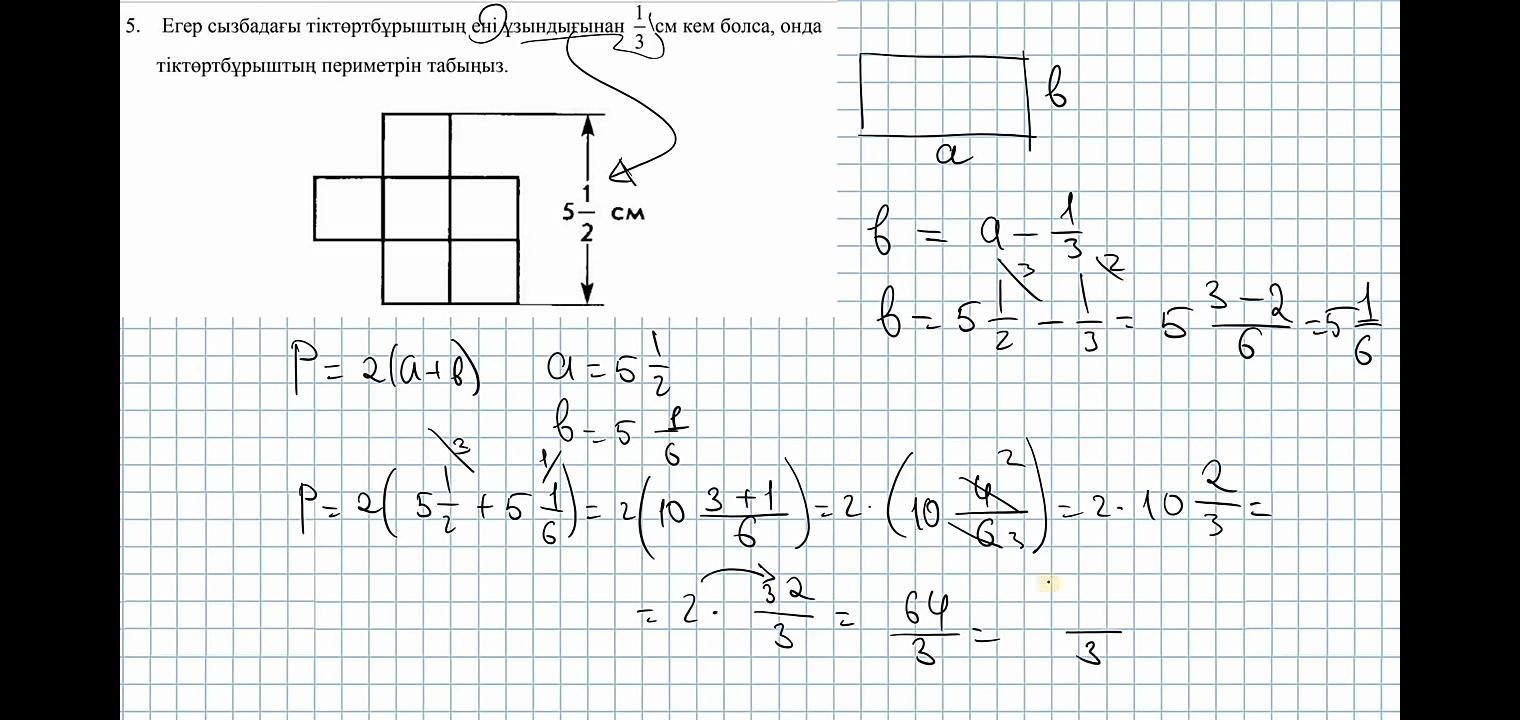 5. Егер сызбадағы тіктөртбұрыштың ені ұзындығынан 1/3 см кем болса, онда
тіктөртбұрыштың периметрін табыңыз.
5 1/2 см
в
а
в = а - 1/3
в = 5 1/2 \3 - 1/3 \2 = 5 (3-2)/6 = 5 1/6
P = 2(а+в) а = 5 1/2
в = 5 1/6
P = 2(5 1/2 \3 + 5 1/6 \1) = 2(10 (3+1)/6) = 2·(10 4/6 2 3) = 2·10 2/3 =
= 2· 32/3 = 64/3 = /3